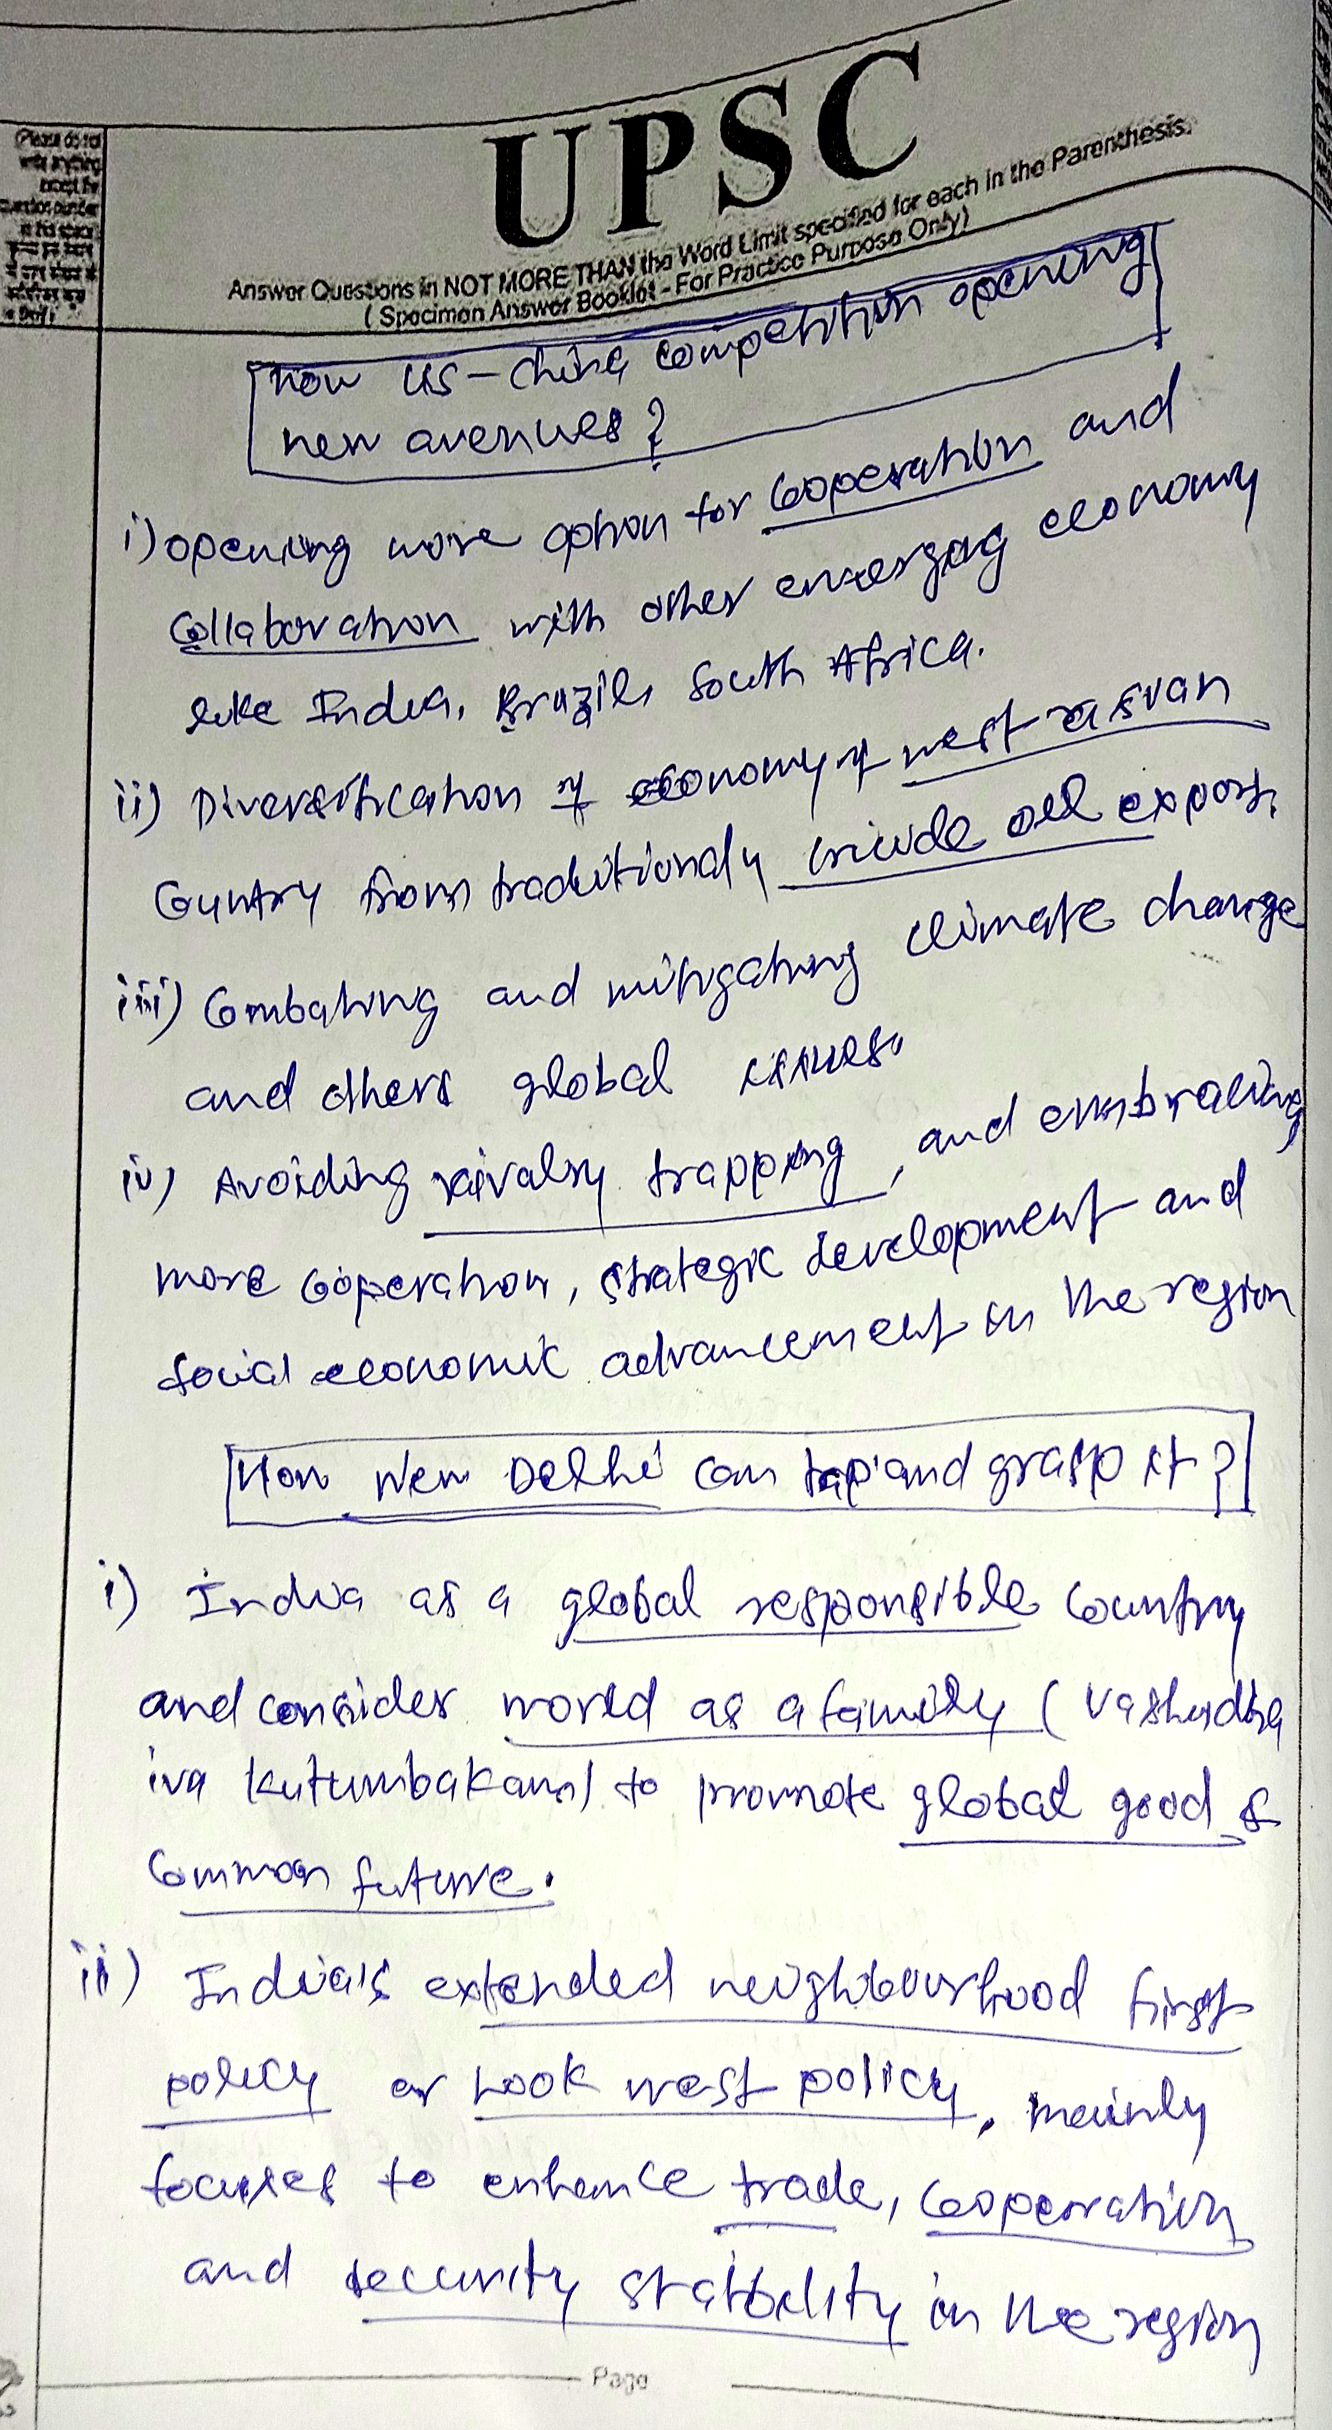 UPSC
Answer Questions in NOT MORE THAN the Word Limit specified for each in the Parenthesis.
(Specimen Answer Booklet - For Practice Purpose Only)
(Please do not
write anything
except the
question number
in this space
How US-China competition opening
new avenues?
i) opening more option for cooperation and
collaboration with other emerging economy
like India, Brazil, South Africa.
ii) Diversification of economy of west asian
Country from traditionaly cricude oil export.
iii) Combating and mitigating climate change
and others global issues.
iv) Avoiding raivalry trapping, and embracing
more cooperation, strategic development and
social economic advancement in the region
How New Delhi can tap and grasp it?
i) India as a global responsible country
and consider world as a family (Vashudha
iva kutumbakam) to promote global good &
common future.
ii) India's extended neighbourhood first
policy or Look west policy, mainly
focuses to enhance trade, cooperation
and security stability in the region
Page